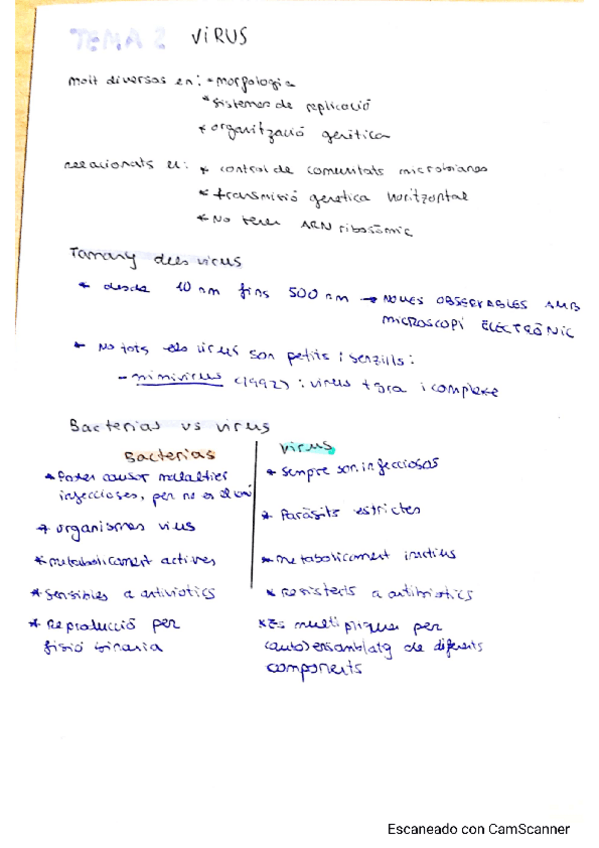 TEMA 2 VIRUS
molt diversos en: * morfologia
* sistemes de replicació
* organització genètica
relacionats en: * control de comunitats microbianes
* transmisió genetica horitzontal
* No tenen ARN ribosòmic
Tamany dels virus
* desde 10 nm fins 500 nm → NOMES OBSERVABLES AMB
MICROSCOPI ELECTRÒNIC
* No tots els virus son petits i senzills:
- mimivirus (1992): virus + gra i complexe
Bacterias vs virus
Bacterias
* Poden causar malalties
infeccioses, per no es el
* organismes vius
* metabolicament actives
* Sensibles a antiviotics
* Reproducció per
fisió binaria
virus
* Sempre son infecciosos
* Paràsits estrictes
* metabolicament inactius
* resistents a antibiotics
* Es multipliquen per
(auto)ensamblatg de diferents
components
Escaneado con CamScanner